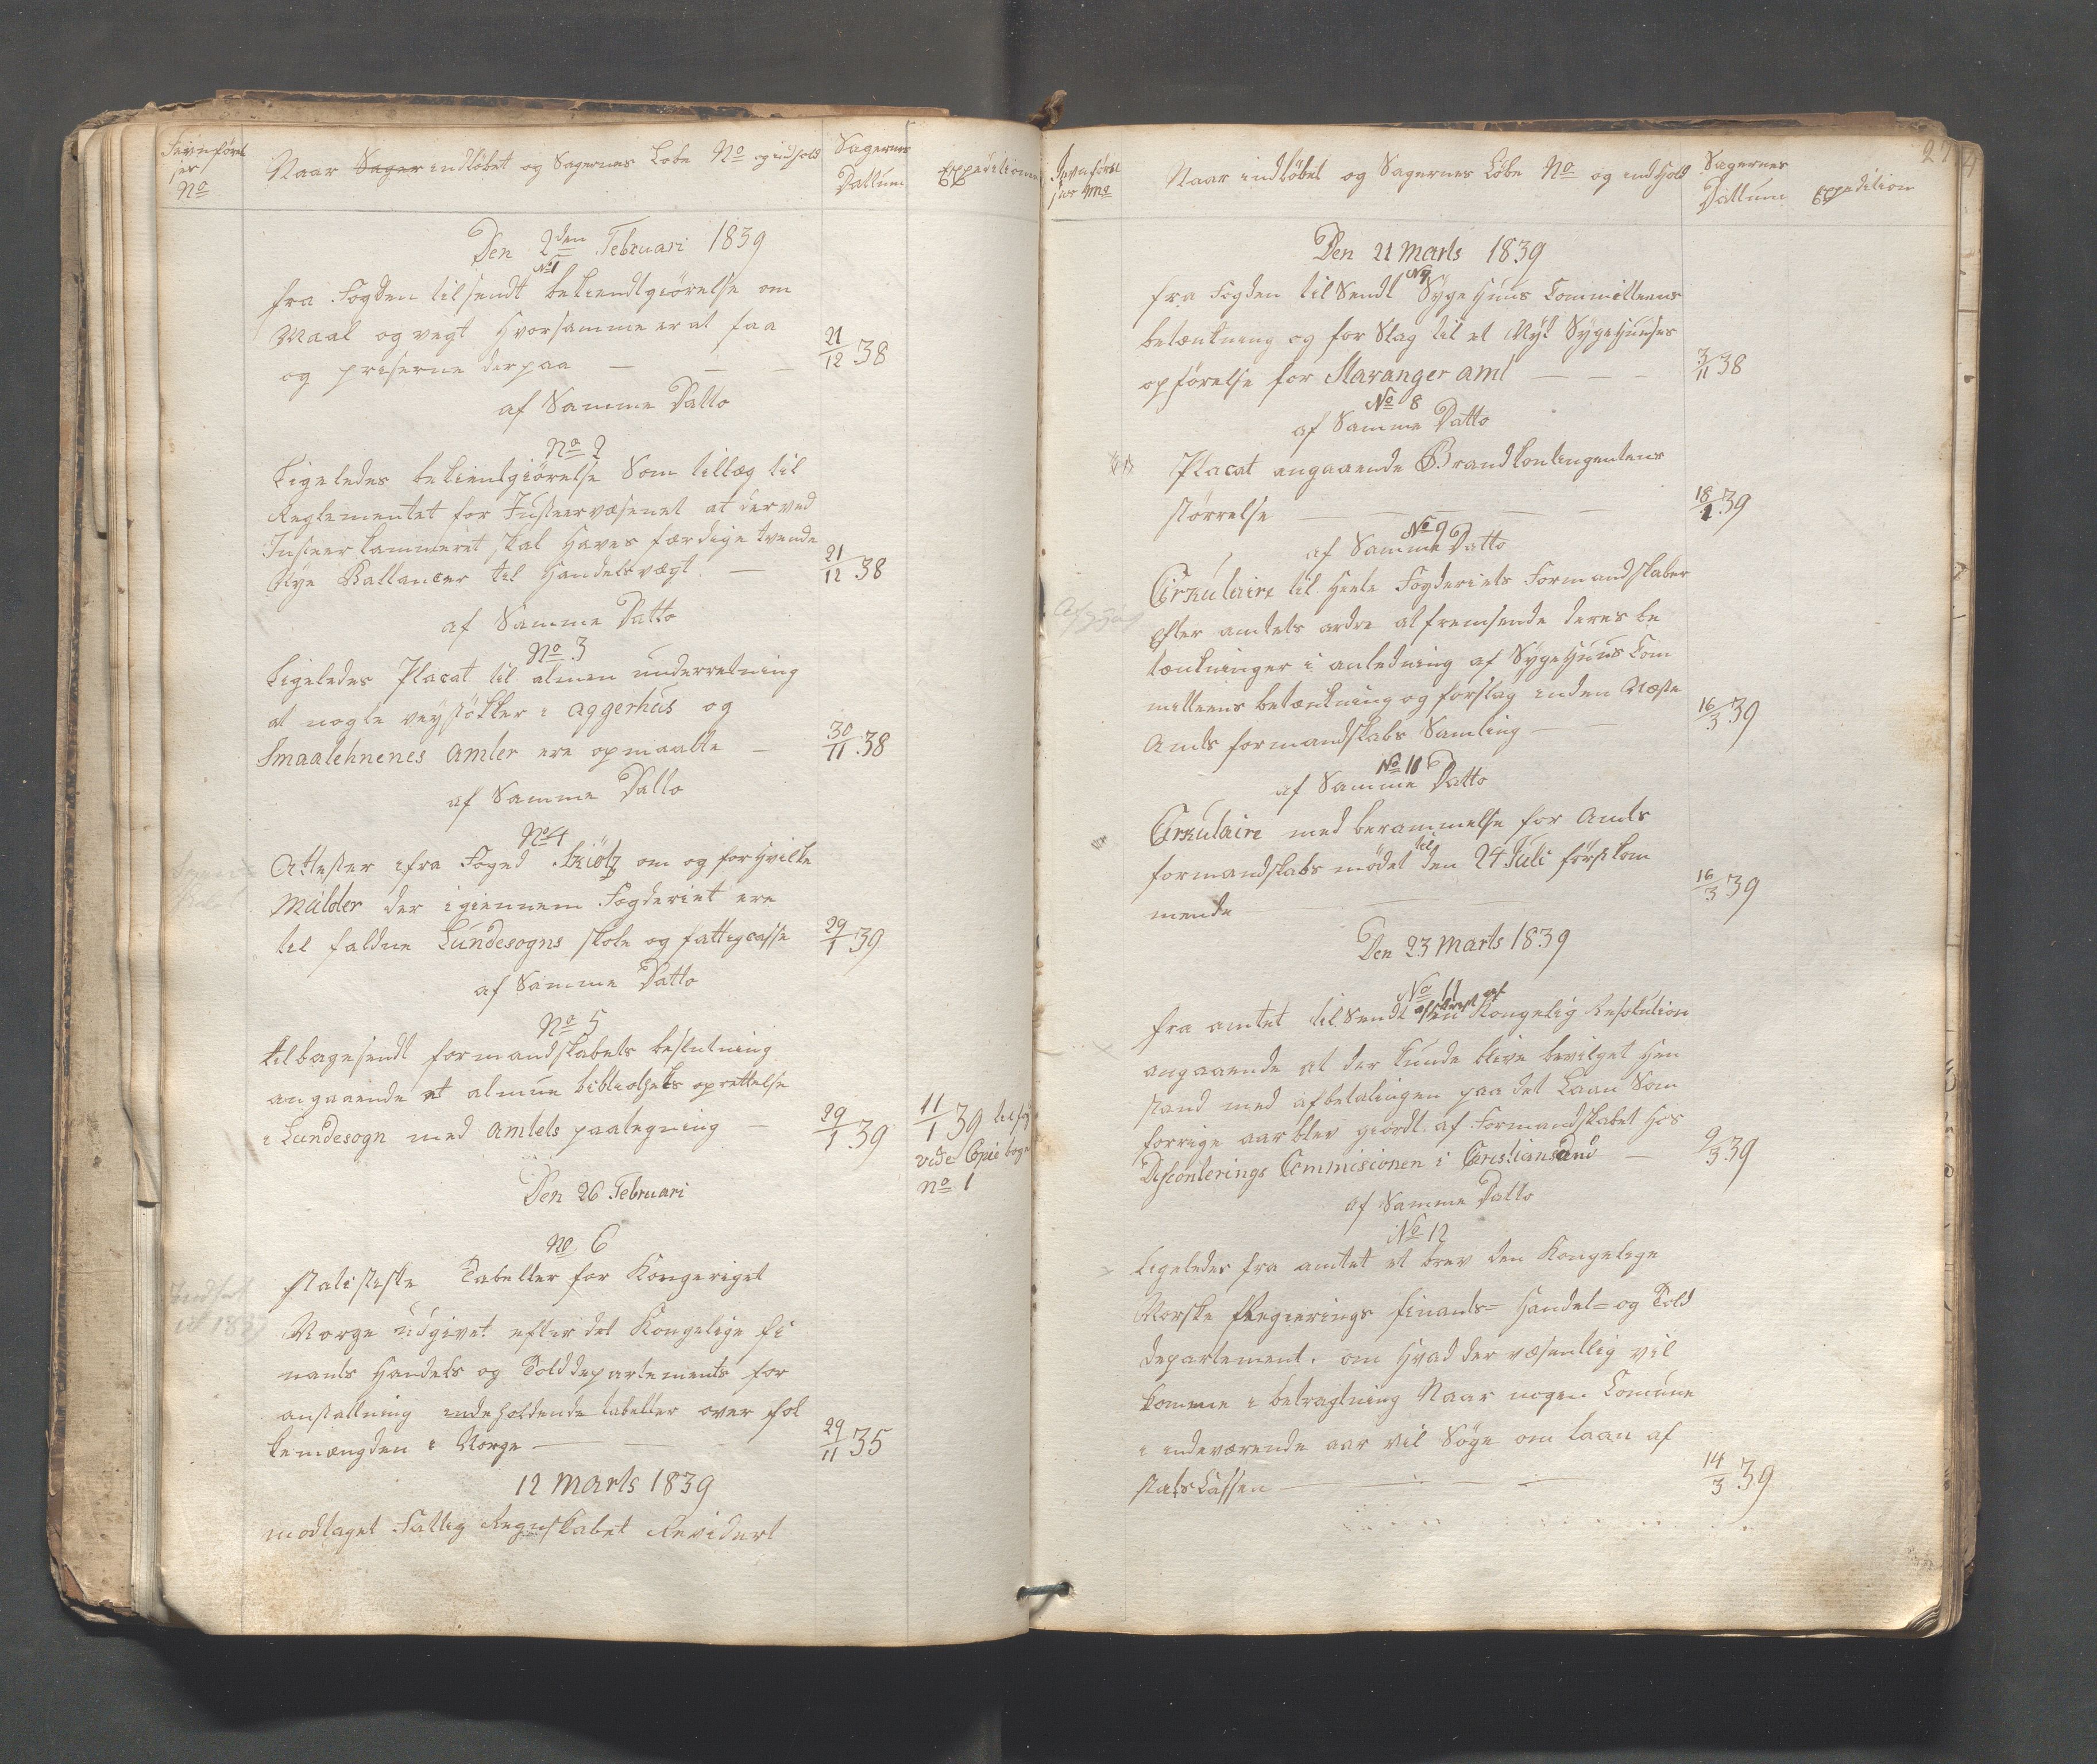 Jevnførel
ser
No
Naar Sager indløbet og Sagernes Løbe No og indhold
Sagernes
Dattum
Expeditionen
Den 2den Februari 1839
No 1
fra Fogden tilsendt bekiendtgiørelse om
Maal og vegt Hvorsamme er at faa
og priserne derpaa — — —
21/12 38
af Samme Datto
No 2
Ligeledes bekientgiørelse Som tillæg til
Reglementet for Justeervæsenet at der ved
Justeerkammeret skal Haves færdige tvende
Nye Ballancer til Handelsvægt —
21/12 38
af Samme Datto
No 3
Ligeledes Placat til almen underretning
at nogle veystøkker i aggerhus og
Smaalehnenes amter ere opmaalte —
30/11 38
af Samme Datto
No 4
Attester ifra Foged Skiøtz om og for Hvilke
Mulder der igiennem Fogderiet ere
til faldne Lundesogns skole og fattigcasse
29/1 39
af Samme Datto
No 5
tilbagesendt formandskabets beslutning
angaaende et almue bibliotheks oprettelse
i Lundesogn med amtets paategning —
29/1 39
11/1 39
vide Copie boge
no 1
Den 26 Februari
No 6
statistiske Tabeller for Kongeriget
Norge udgivet efter det Kongelige fi
nants Handels og Tolddepartements for
anstaltning indeholdende tabeller over fol
kemængden i Norge —
29/11 35
12 Marts 1839
modtaget Fattig Regnskabet Revidert
27
Jevnførel
ser No
Naar indløbet og Sagernes Løbe No og indhold
Sagernes
Dattum
Expedition
Den 21 Marts 1839
No 7
fra Fogden tilSendt SygeHuus Committeens
betænkning og for Slag til et Nyt SygeHuuses
opførelse for Stavanger amt — — —
3/11 38
No 8
af Samme Datto
Placat angaaende Brandkontingentens
størrelse — — — —
18/1 39
No 9
af Samme Datto
Cirkulaire til Heele Fogderiets Formandskaber
efter amtets ordre at fremsende deres be
tænkninger i anledning af SygeHuus Com
mitteens betænkning og forslag inden Næste
Amts formandskabs Samling —
16/3 39
No 10
af Samme Datto
Cirkulaire med berammelse for Amts
formandskabs mødet til den 24 Juli førstkom
mende
16/3 39
Den 23 Marts 1839
No 11
fra amtet tilSendt Kongelig Resolution
angaaende at der kunde blive bevilget Hen
stand med afbetalingen paa det Laan Som
forrige aar blev giordt af Formandskabet Hos
Disconterings Commisionen i Cristiansand —
9/3 39
af Samme Datto
No 12
Ligeledes fra amtet et brev den Kongelige
Norske Regierings finants= Handel= og Told
departement. om Hvad der væsentlig vil
komme i betragtning Naar nogen Comune
i indeværende aar vil Søge om laan af
statsCassen —
14/3 39